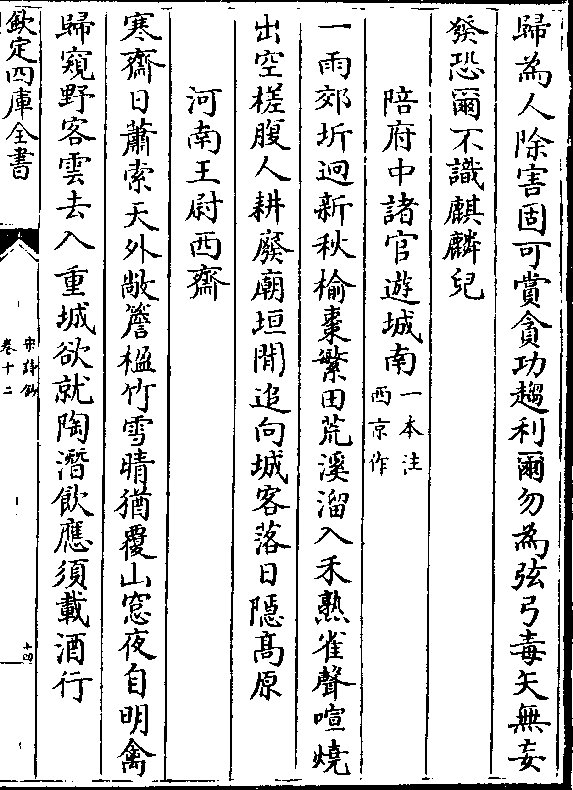 歸為人除害固可賞貪功趨利爾勿為弦弓毒矢無妄
發恐爾不識麒麟兒
陪府中諸官遊城南一本注西京作
一雨郊圻迥新秋榆棗繁田荒溪溜入禾熟雀聲喧燒
出空槎腹人耕廢廟垣閒追向城客落日隱髙原
河南王尉西齋
寒齋日蕭索天外敞簷楹竹雪晴猶覆山窓夜自明禽
歸窺野客雲去入重城欲就陶潛飲應須載酒行
欽定四庫全書
宋詩鈔
卷十二
十四